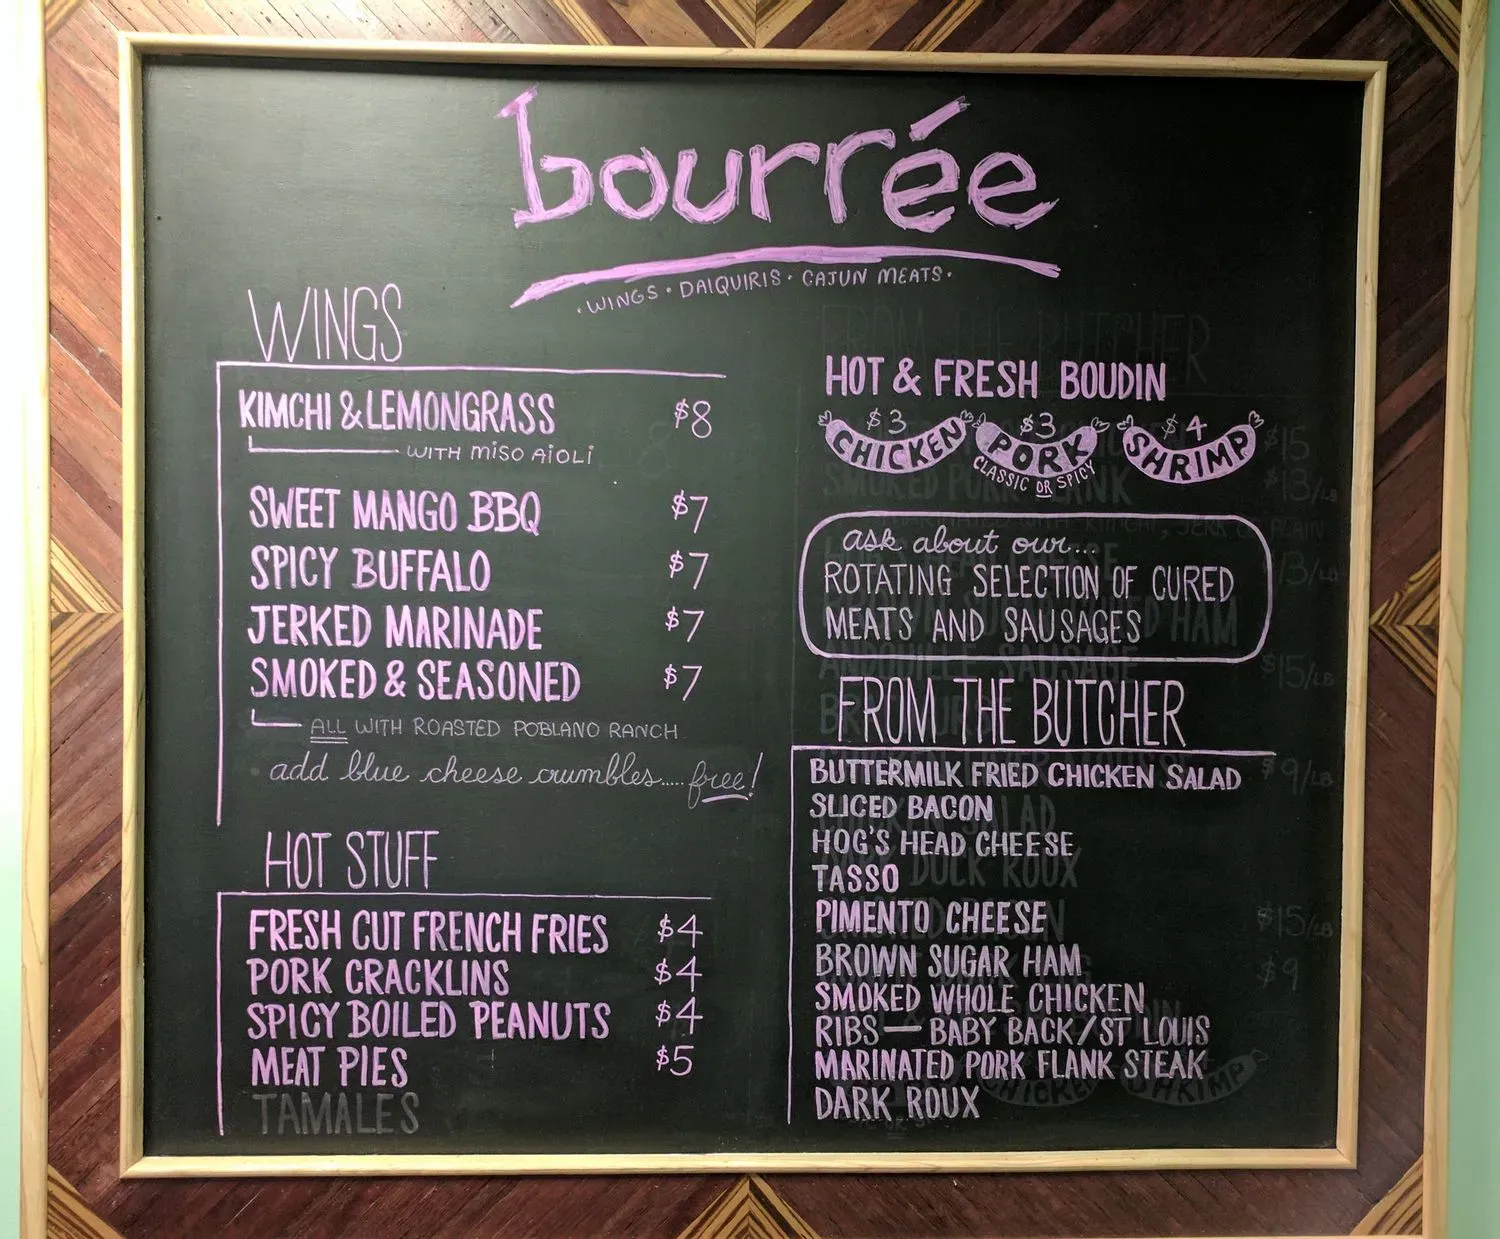 bourrée
· WINGS · DAIQUIRIS · CAJUN MEATS ·
WINGS
KIMCHI & LEMONGRASS $8
WITH MISO AIOLI
SWEET MANGO BBQ $7
SPICY BUFFALO $7
JERKED MARINADE $7
SMOKED & SEASONED $7
ALL WITH ROASTED POBLANO RANCH
add blue cheese crumbles..... free!
HOT STUFF
FRESH CUT FRENCH FRIES $4
PORK CRACKLINS $4
SPICY BOILED PEANUTS $4
MEAT PIES $5
TAMALES
HOT & FRESH BOUDIN
$3 $3 $4
CHICKEN PORK SHRIMP
CLASSIC OR SPICY
ask about our...
ROTATING SELECTION OF CURED
MEATS AND SAUSAGES
FROM THE BUTCHER
BUTTERMILK FRIED CHICKEN SALAD
SLICED BACON
HOG'S HEAD CHEESE
TASSO
PIMENTO CHEESE
BROWN SUGAR HAM
SMOKED WHOLE CHICKEN
RIBS — BABY BACK/ST LOUIS
MARINATED PORK FLANK STEAK
DARK ROUX